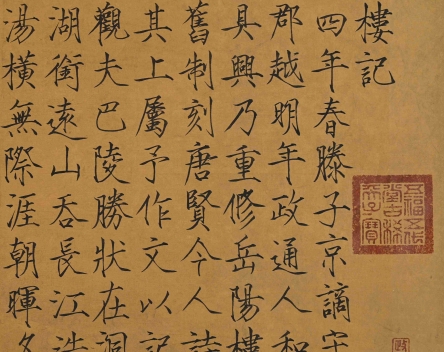 樓記
四年春滕子京謫守
郡越明年政通人和
具興乃重修岳陽樓
舊制刻唐賢今人詩
其上屬予作文以記
觀夫巴陵勝狀在洞
湖銜遠山吞長江浩
湯橫無際涯朝暉夕
五福五代
堂古稀
天子寶